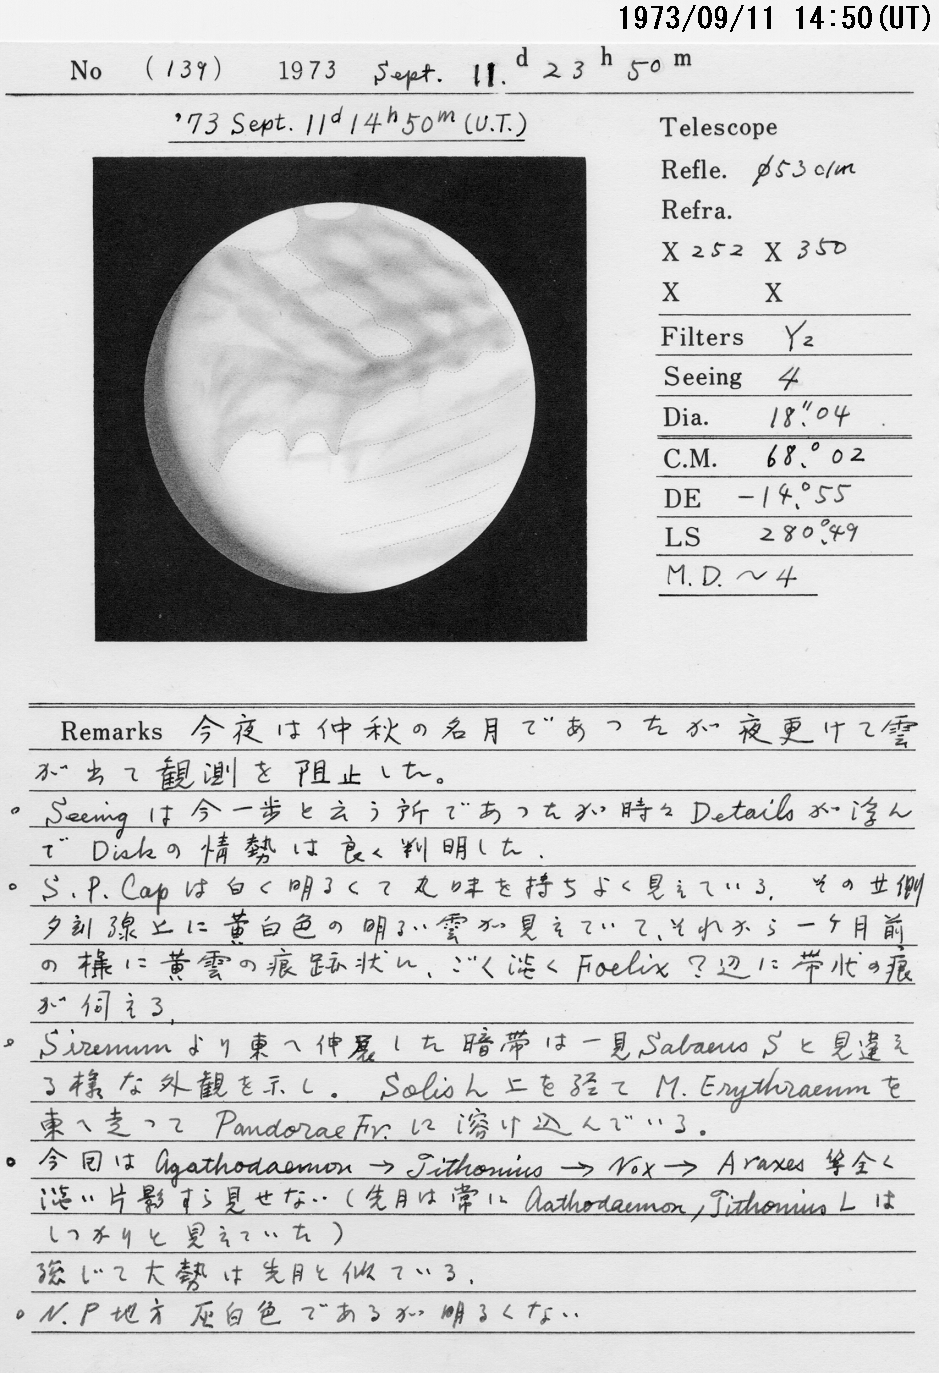 1973/09/11 14:50(UT)
No (139) 1973 Sept. 11.d 23h 50m
'73 Sept. 11d 14h 50m (U.T.)
Telescope
Refle. φ53c/m
Refra.
X 252 X 350
X X
Filters Y2
Seeing 4
Dia. 18".04
C.M. 68.°02
DE -14.°55
LS 280.°49
M.D. ~4
Remarks 今夜は仲秋の名月であったが夜更けて雲
が出て観測を阻止した。
。Seeingは今一歩と云う所であったが時々Detailsが浮ん
で Diskの情勢は良く判明した.
。S.P. Capは白く明るくて丸味を持ちよく見えている. その北側
夕刻線上に黄白色の明るい雲が見えていて、それから一ケ月前
の様に黄雲の痕跡状に、ごく淡くFoelix?辺に帯状の痕
が伺える.
。Sirenumより東へ伸展した暗帯は一見Sabaeus Sと見違え
る様な外観を示し。 Solis L上を経てM. Erythraeumを
東へ走ってPandorae Fr.に溶け込んでいる。
。今回はAgathodaemon→Tithonius→Nox→Araxes等全く
淡い片影すら見せない(先月は常にAathodaemon, Tithonius Lは
しっかりと見えていた)
総じて大勢は先月と似ている.
。N.P地方 灰白色であるが明るくない